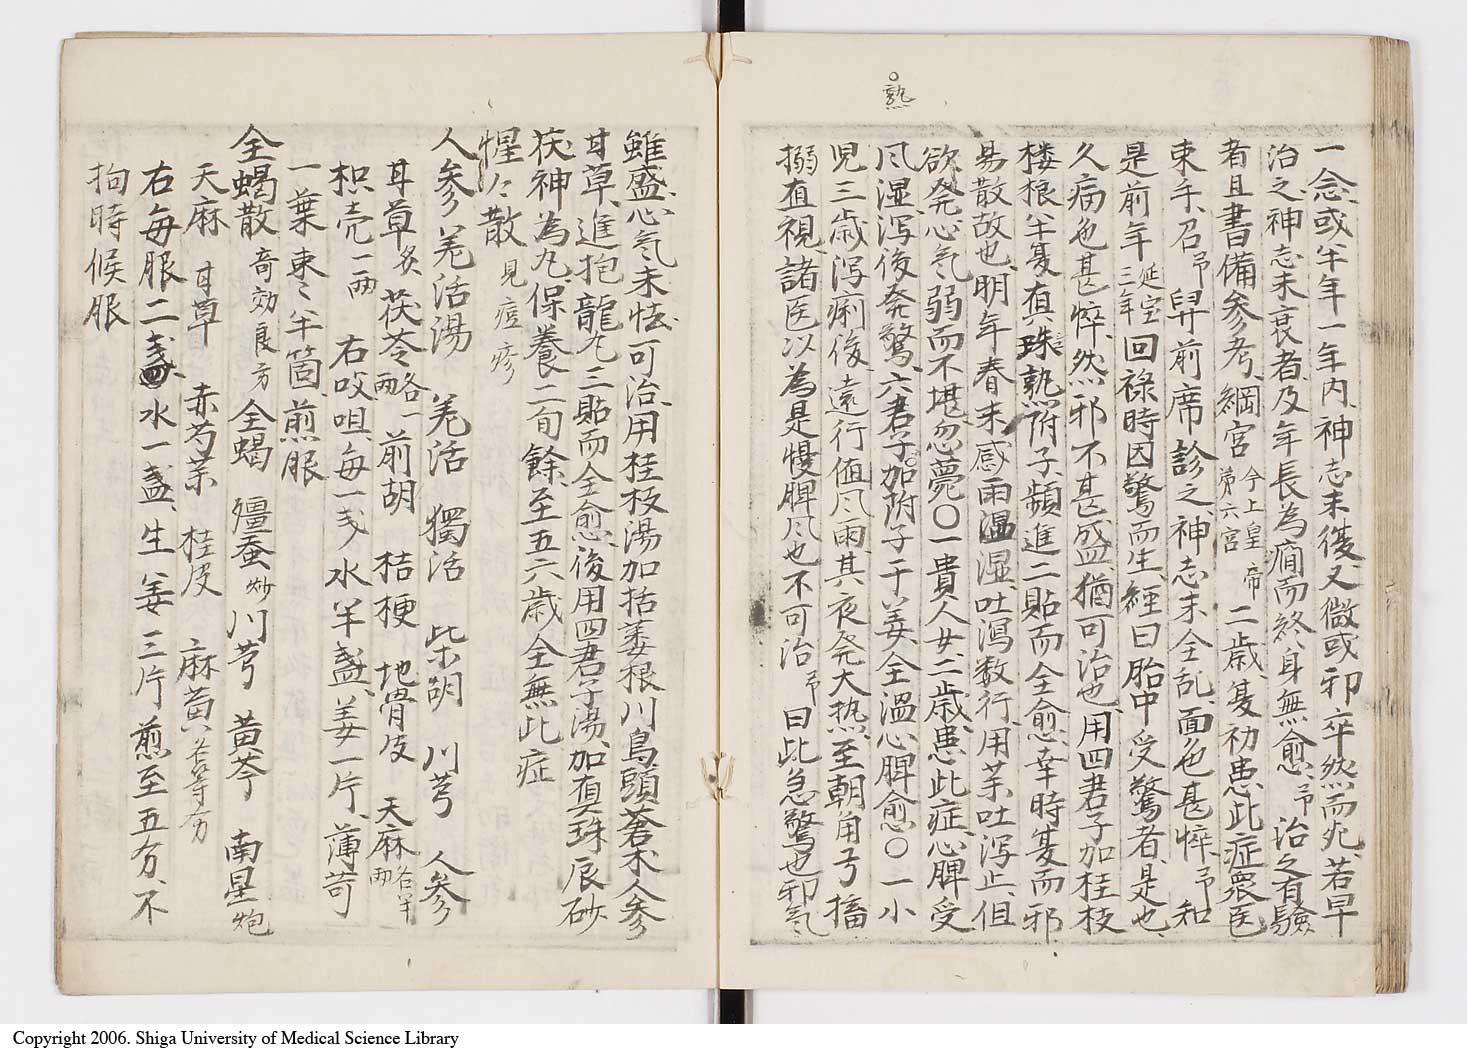 熟
一念或半年一年内神志未復又微或邪卒然而死若早
治之神志未衰者及年長為癇而終身無愈予治之有驗
者且書備参考綱宮今上皇帝第六宮二歳夏初患此症衆医
束手召予舁前席診之神志未全乱面色甚悴予和
是前年延宝三年回禄時因驚而生經曰胎中受驚者是也
久病色甚悴然邪不甚盛猶可治也用四君子加桂枝
楼根半夏真珠熟附子頻進二貼而全愈幸時夏而邪
易散故也明年春末感雨湿吐瀉数行用茱吐瀉止但
欲発心気弱而不堪忽薨〇一貴人女二歳患此症心脾受
風湿瀉後発驚六君子加附子干姜全温心脾愈〇一小
児三歳瀉痢後遠行値風雨其夜発大熱至朝角弓搐
搦直視諸医以為是慢脾風也不可治予曰此急驚也邪気
雖盛心気未怯可治用桂枝湯加括蒌根川烏頭蒼朮人参
甘草進抱龍丸三貼而全愈後用四君子湯加真珠辰砂
茯神為丸保養二旬餘至五六歳全無此症
惺々散 見痘疹
人参羌活湯 羌活 獨活 柴胡 川芎 人参
甘草炙 茯苓各一両 前胡 桔梗 地骨皮 天麻各半両
枳壳一両 右㕮咀毎一戔水半盞姜一片薄苛
一葉棗半箇煎服
全蝎散奇効良方 全蝎 殭蚕炒 川芎 黄芩 南星炮
天麻 甘草 赤芍薬 桂皮 麻黄各等分
右毎服二戔水一盞生姜三片煎至五分不
拘時候服
Copyright 2006. Shiga University of Medical Science Library